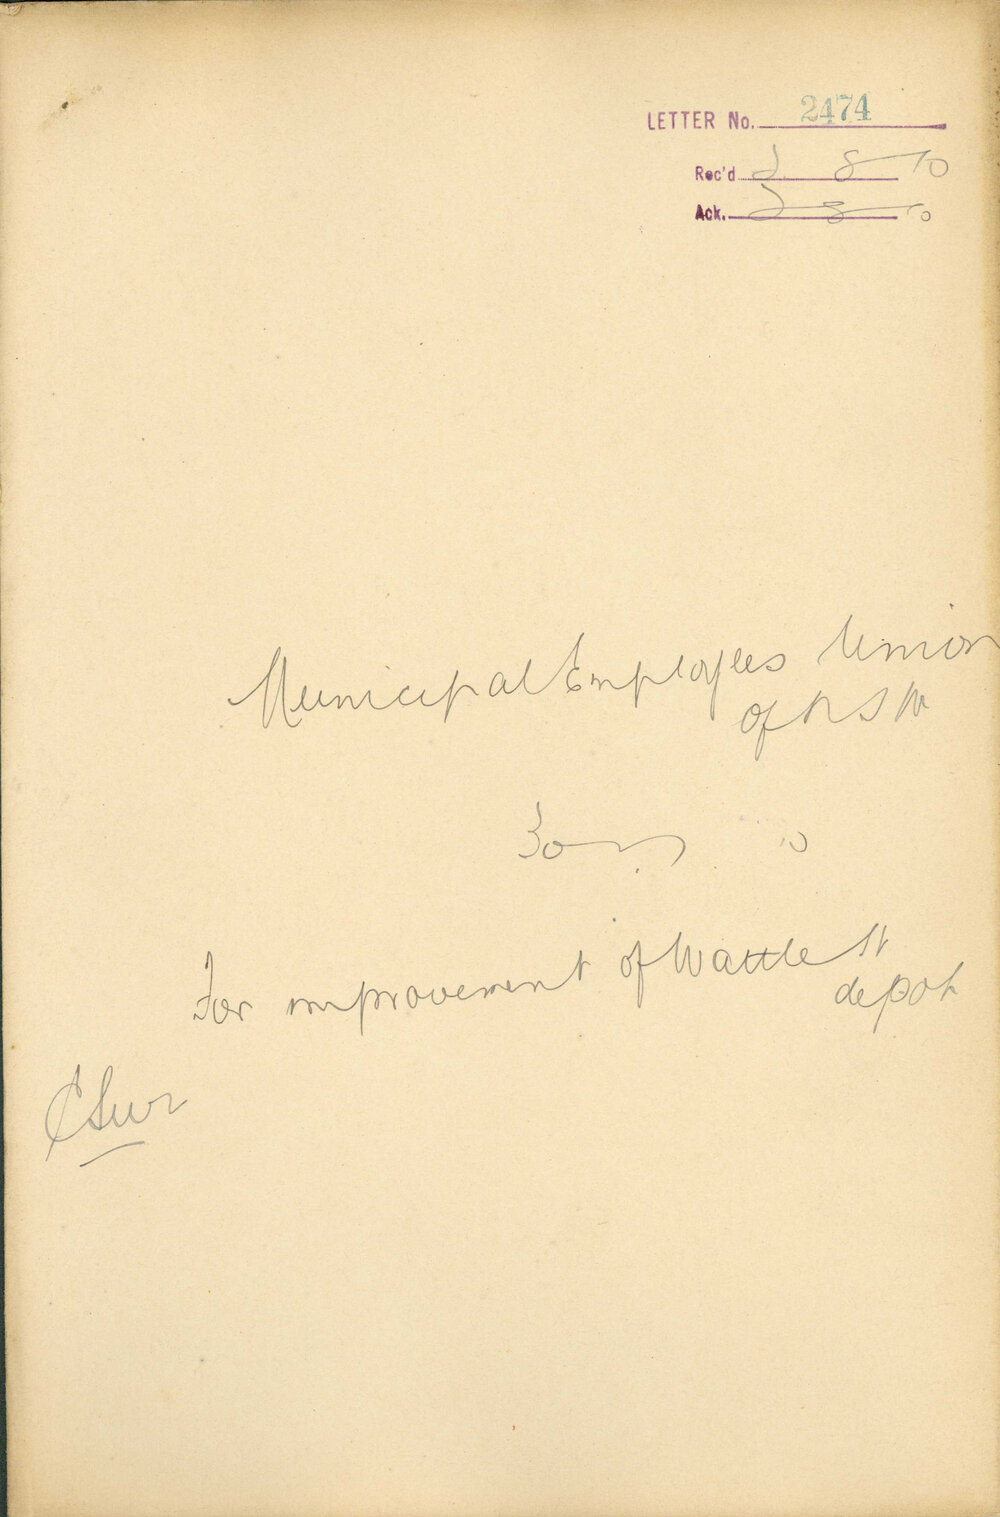 LETTER No. 2474
Rec'd 2 8 10
Ack. 2 8 10
Municipal Employees Union
of NSW
30 7 10
For improvement of Wattle St
depot